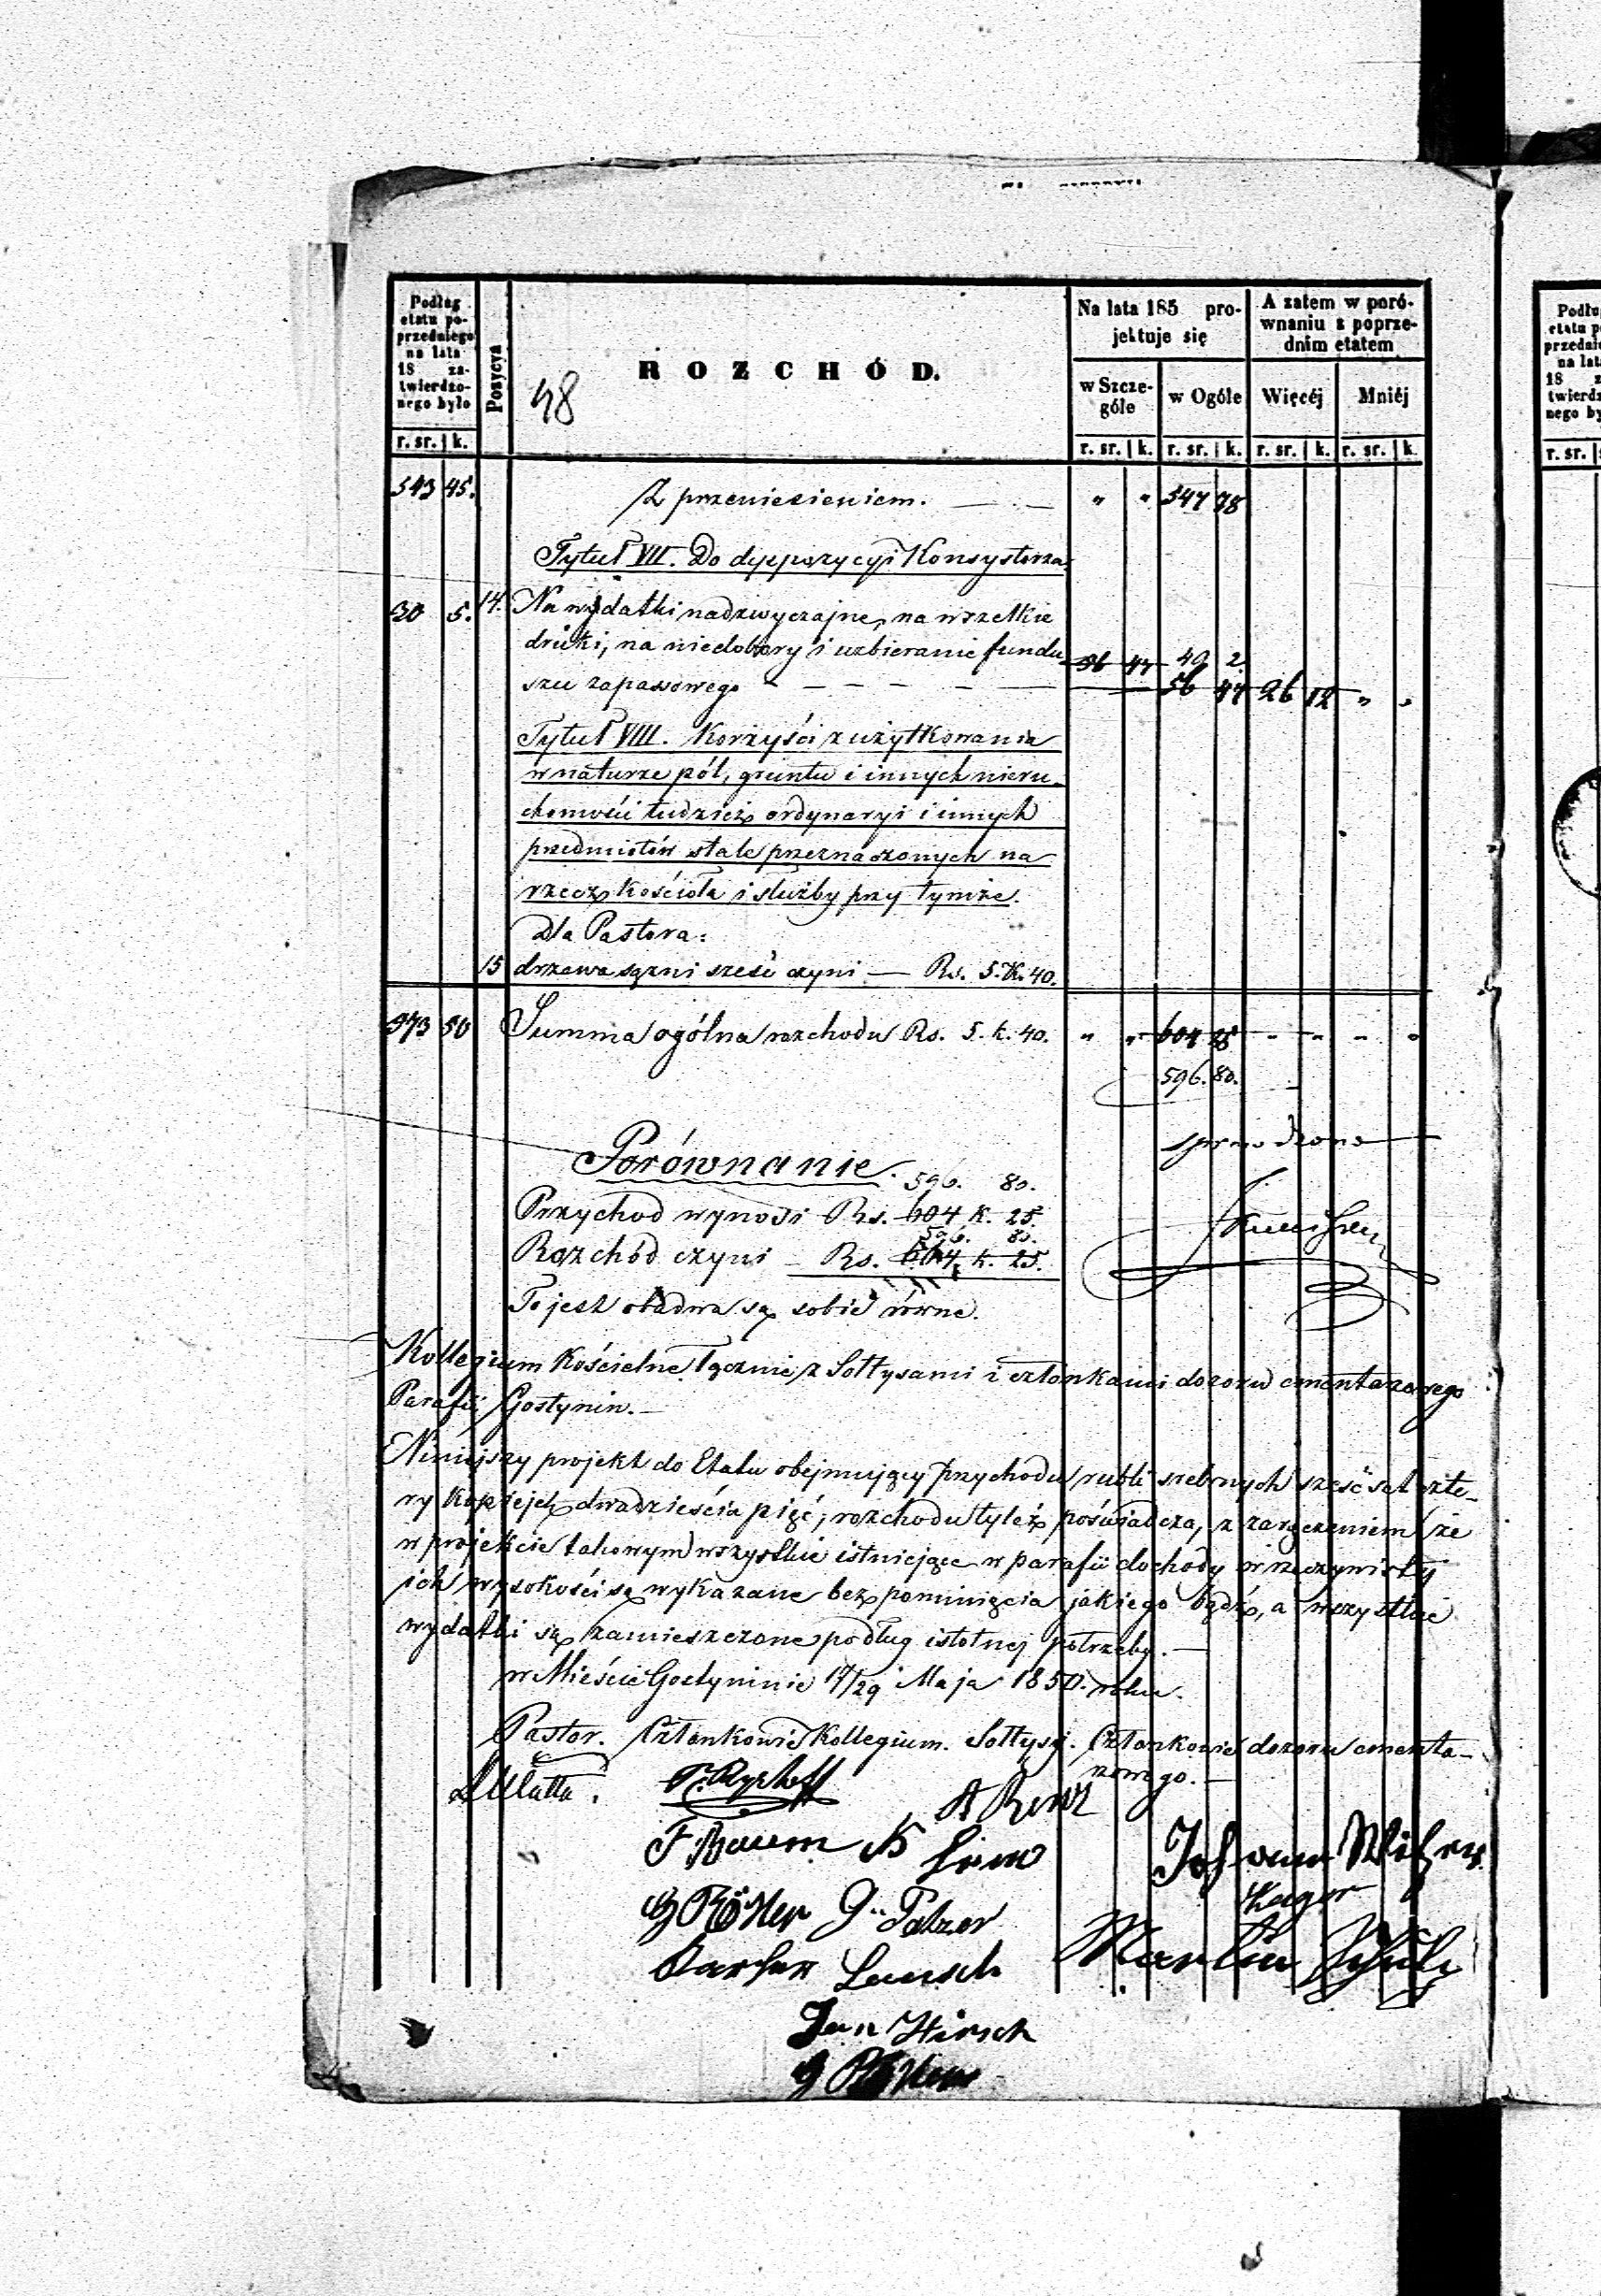 Podług etatu poprzedniego na lata 18 zatwierdzonego było
Pozycya
R O Z C H Ó D.
48
Na lata 185 projektuje się
A zatem w porównaniu z poprzednim etatem
w Szczególe
w Ogóle
Więcéj
Mniéj
r. sr. k. r. sr. k. r. sr. k. r. sr. k. r. sr. k.
543 45. Z przeniesieniem. — . — " " 547 78
Tytuł VII. Do dyspozycyi Konsystorza
30 5. 14. Na wydatki nadzwyczajne, na wszelkie
druki, na niedobory i uzbieranie fundu 56 47 49 2
szu zapasowego - - - - - 56 47 26 42 " "
Tytuł VIII. Korzyści z użytkowania
w naturze pól, gruntu i innych nieru-
chomości tudzież ordynaryi i innych
przedmiotów stale przeznaczonych na
rzecz kościoła i służby przy tymże.
Dla Pastora:
15 drzewa sążni sześć czyni — Rs. 5. K. 40.
573 50 Summa ogólna rozchodu Rs. 5. k. 40. " " 604 25 " " " "
596. 80.
sprawdzono
Porównanie.
596. 80.
Przychod wynosi Rs. 604 k. 25.
596. 80.
Rozchód czyni — Rs. 604 k. 25.
To jest obadwa są sobie równe.
Kollegium Kościelne łącznie z Sołtysami i członkami dozoru cmentarzowego
Parafii Gostynin. —
Niniejszy projekt do Etatu obejmujący przychodu rubli srebrnych sześćset czte-
ry kopiejek dwadzieścia pięć, rozchodu tyleż poświadcza, z zaręczeniem że
w projekcie takowym wszystkie istniejące w parafii dochody w rzeczywistej
ich wysokości są wykazane bez pominięcia jakiego bądź, a wszystkie
wydatki są zamieszczone podług istotnej potrzeby. —
w Mieście Gostyninie 17/29 Maja 1850. roku.
Pastor. Członkowie Kollegium. Sołtysi. Członkowie dozoru cmenta-
rzowego. —
F Baum
Johann
G Rösler G. Patzer
Lausch Martin Schulz
Jan Hirsch
Podług etatu
na lata
18
r. sr.